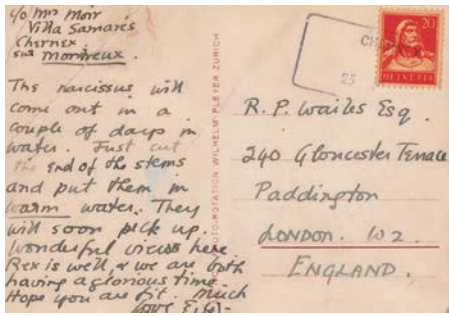 c/o Mrs Moir
Villa Samares
Chernex
sur Montreux.
The narcissus will
come out in a
couple of days in
water. Just cut
the end of the stems
and put them in
warm water. They
will soon pick up.
Wonderful views here
Rex is well, & we are both
having a glorious time.
Hope you are fit. Much
love
PHOTO-ROTATION WILHELM PLEYER ZURICH
25
20
HELVETIA
R. P. Wailes Esq.
240 Gloucester Terrace
Paddington
LONDON. W2.
ENGLAND.